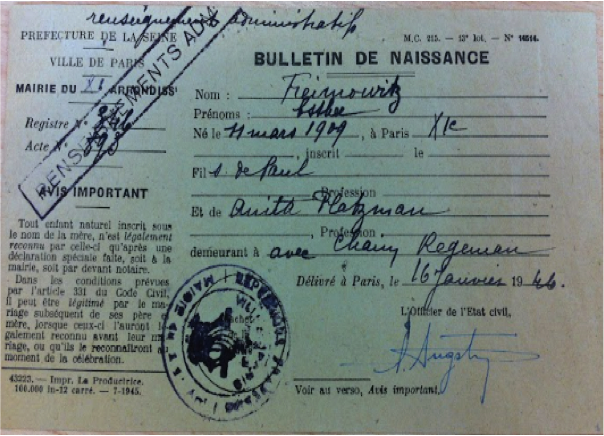 renseignements administratifs
PREFECTURE DE LA SEINE
VILLE DE PARIS
MAIRIE DU XI ARRONDISSt
Registre N°
Acte N°
RENSEIGNEMENTS ADM
AVIS IMPORTANT
Tout enfant naturel inscrit sous
le nom de la mère, n'est légalement
reconnu par celle-ci qu'après une
déclaration spéciale faite, soit à la
mairie, soit par devant notaire.
Dans les conditions prévues
par l'article 331 du Code Civil,
il peut être légitimé par le ma-
riage subséquent de ses père
mère, lorsque ceux-ci l'auront
galement reconnu avant leur ma-
riage, ou qu'ils le reconnaîtront au
moment de la célébration.
43223. — Impr. La Productrice.
100.000 in-12 carré. — 7-1945.
M.C. 215. — 13e lot. — N°
BULLETIN DE NAISSANCE
Nom :
Prénoms : Esther
Né le 11 mars 1909, à Paris XIe
, inscrit le
Fil s de Paul
Profession
Et de Anita
Profession
demeurant à avec Chaim Regeman
Délivré à Paris, le 16 Janvier 1946.
L'Officier de l'Etat civil,
REPUBLIQUE FRANÇAISE
VILLE DE PARIS
MAIRIE DU
Voir au verso, Avis important.